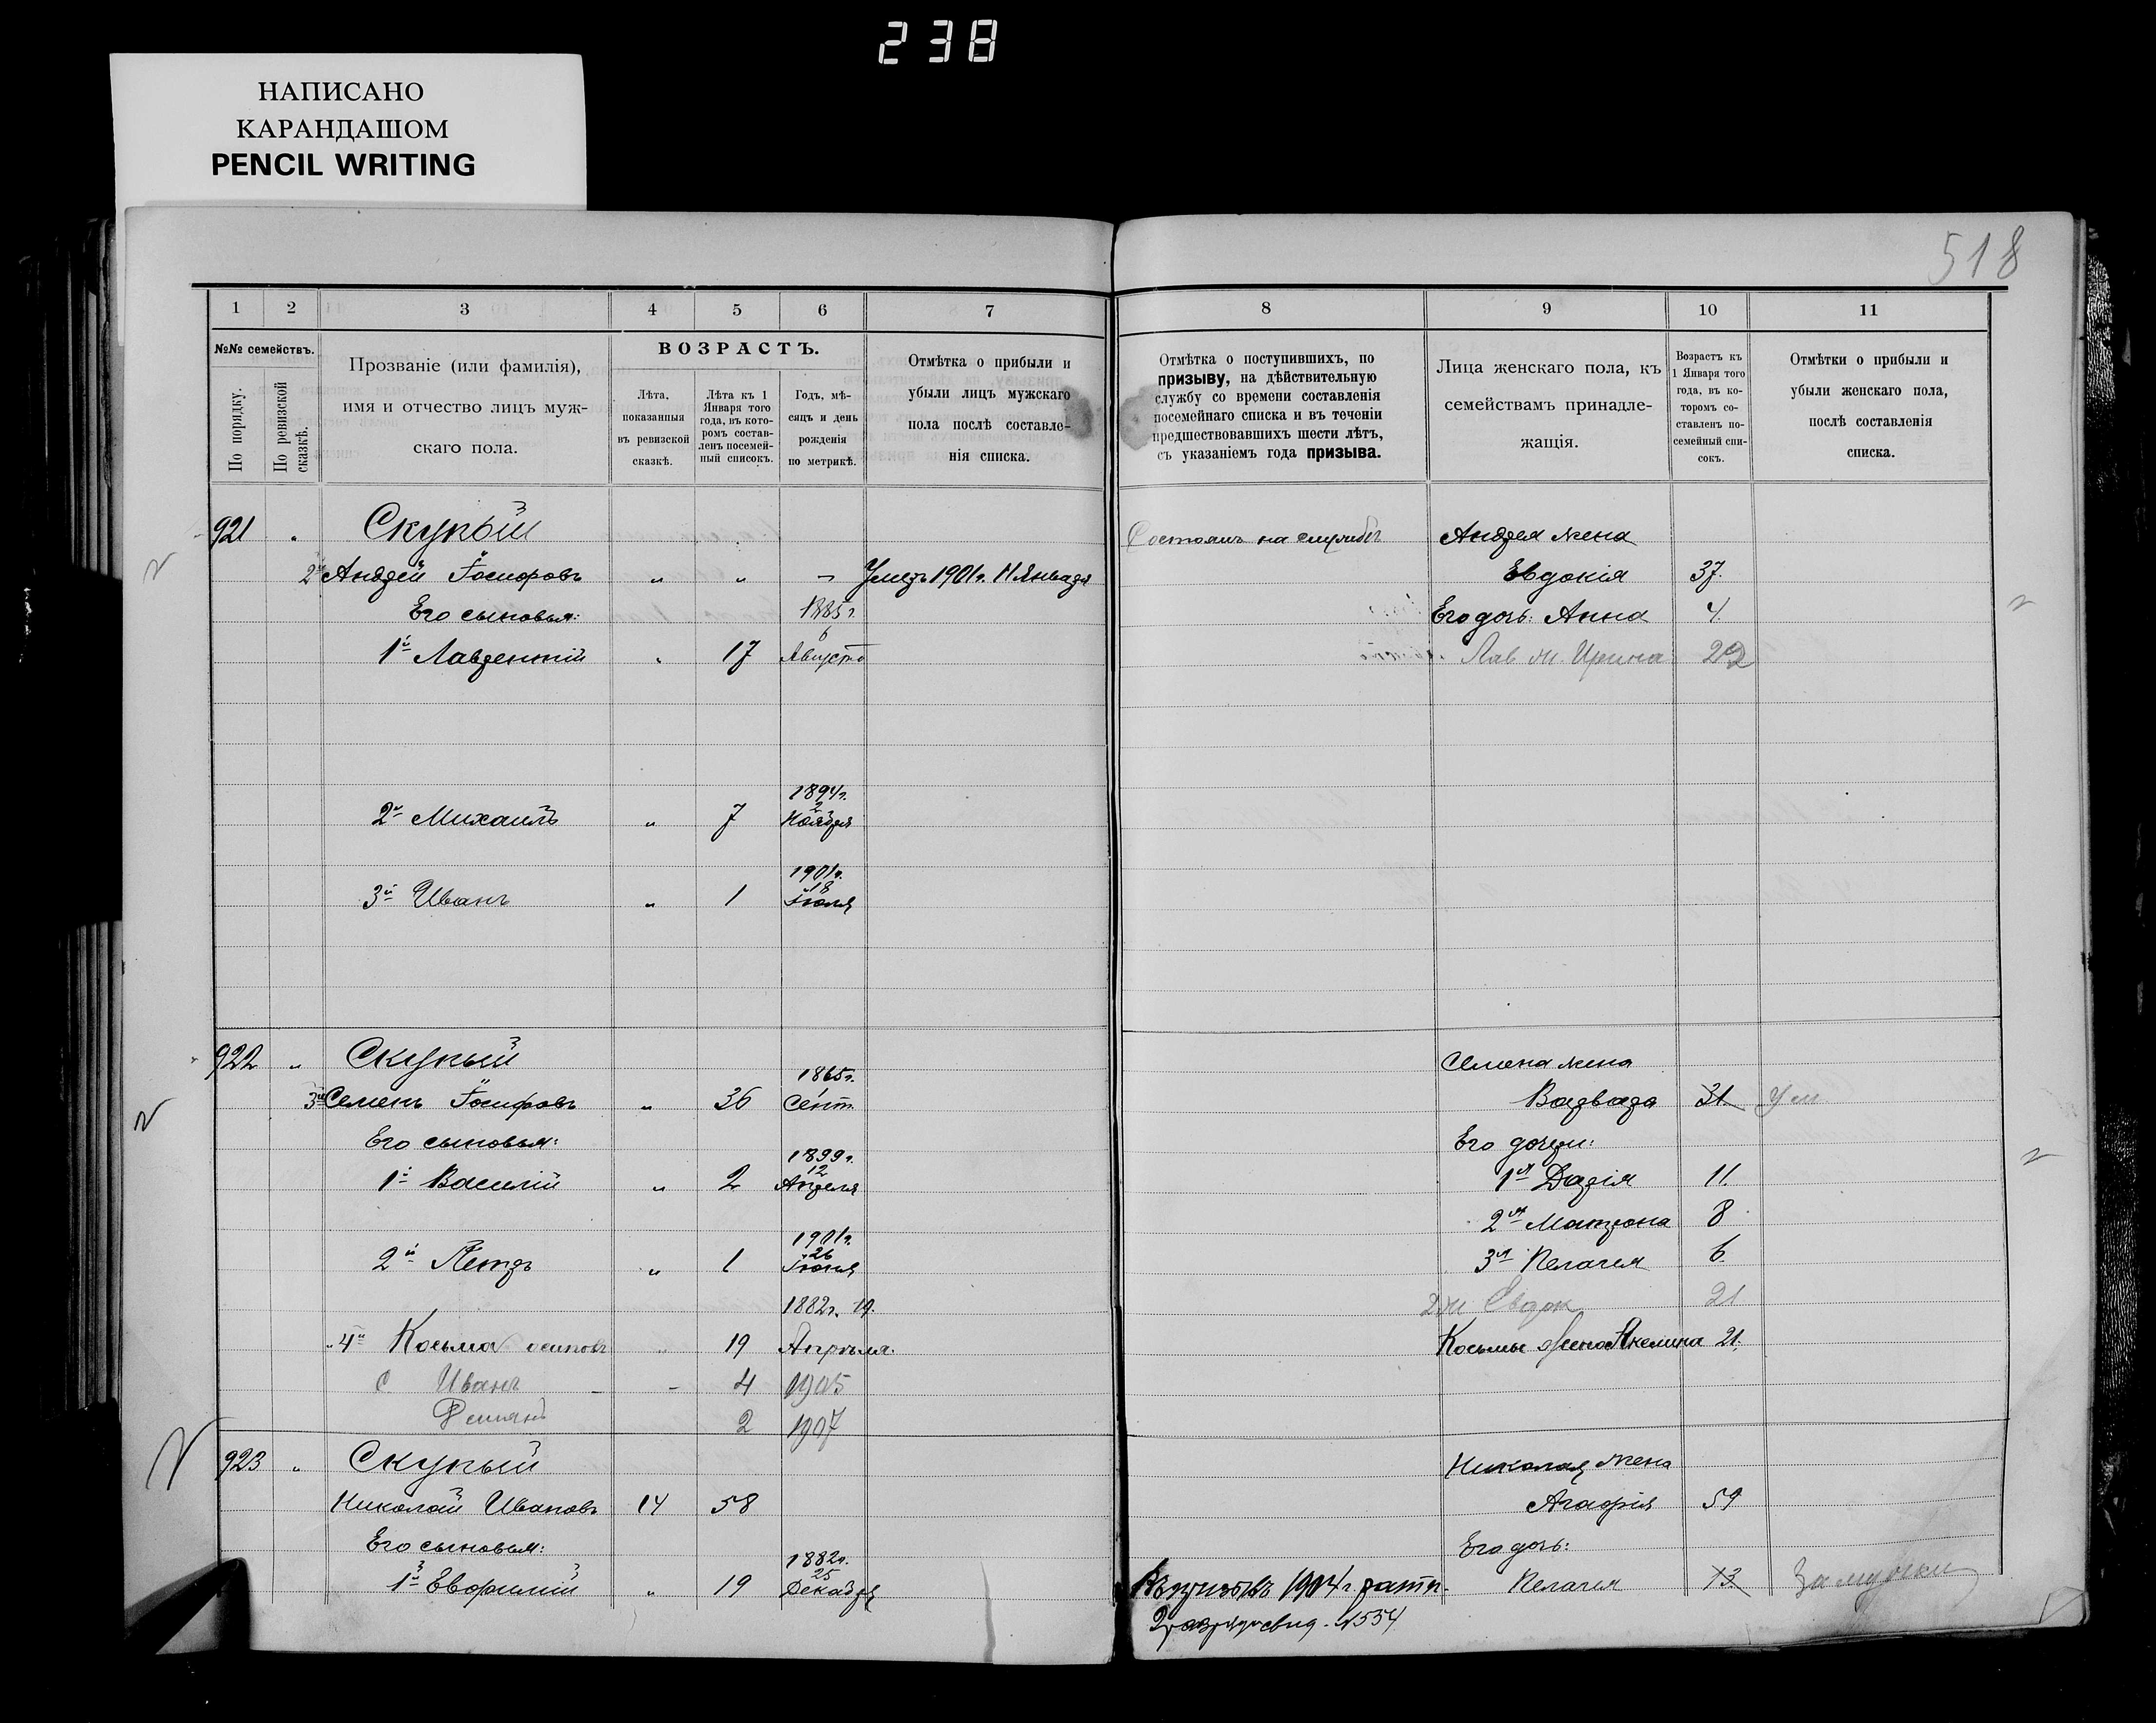 238
НАПИСАНО
КАРАНДАШОМ
PENCIL WRITING
518
1 2 3 4 5 6 7 8 9 10 11
№№ семействъ.
По порядку.
По ревизской сказкѣ.
Прозваніе (или фамилія),
имя и отчество лицъ муж-
скаго пола.
ВОЗРАСТЪ.
Лѣта,
показанныя
въ ревизской
сказкѣ.
Лѣта къ 1
Января того
года, въ кото-
ромъ состав-
ленъ посемей-
ный списокъ.
Годъ, мѣ-
сяцъ и день
рожденія
по метрикѣ.
Отмѣтка о прибыли и
убыли лицъ мужскаго
пола послѣ составле-
нія списка.
Отмѣтка о поступившихъ, по
призыву, на дѣйствительную
службу со времени составленія
посемейнаго списка и въ теченіи
предшествовавшихъ шести лѣтъ,
съ указаніемъ года призыва.
Лица женскаго пола, къ
семействамъ принадле-
жащія.
Возрастъ къ
1 Января того
года, въ ко-
торомъ со-
ставленъ по-
семейный спи-
сокъ.
Отмѣтки о прибыли и
убыли женскаго пола,
послѣ составленія
списка.
921 " Скупый Состоялъ на службѣ Андрея жена
2й Андрей Іосифовъ " " – Умеръ 1901 г. 11 Января Евдокія 37.
Его сыновья: 1885 г. Его дочь: Анна 4.
6
1й Лаврентій " 17 Августа Лав ж. Ирина 22
1894 г.
2
2й Михаилъ " 7 Ноября
1901 г.
18
3й Иванъ " 1 Іюля
922 " Скупый Семена жена
1865 г.
1
3й Семенъ Іосифовъ " 36 Сент. Варвара 31 Ум
Его сыновья: Его дочери:
1899 г.
12
1й Василій " 2 Апреля 1я Дарія 11.
2я Матрона 8
1901 г.
26
2й Петръ " 1 Іюня 3я Пелагея 6.
1882 г. 19. 2 ж Евдок 21
4й Косьма осиповъ " 19 Апрѣля. Косьмы жена Акелина 21.
с Иванъ – – 4 1905
2 1907
923 " Скупый Николая жена
Николай Ивановъ 14 58 Агафія 59
Его сыновья: Его дочь:
1882 г.
25
1й Евфимій " 19 Декабря 1904 г. ратн. Пелагея 13 Замужем
2 разряда свид. №554